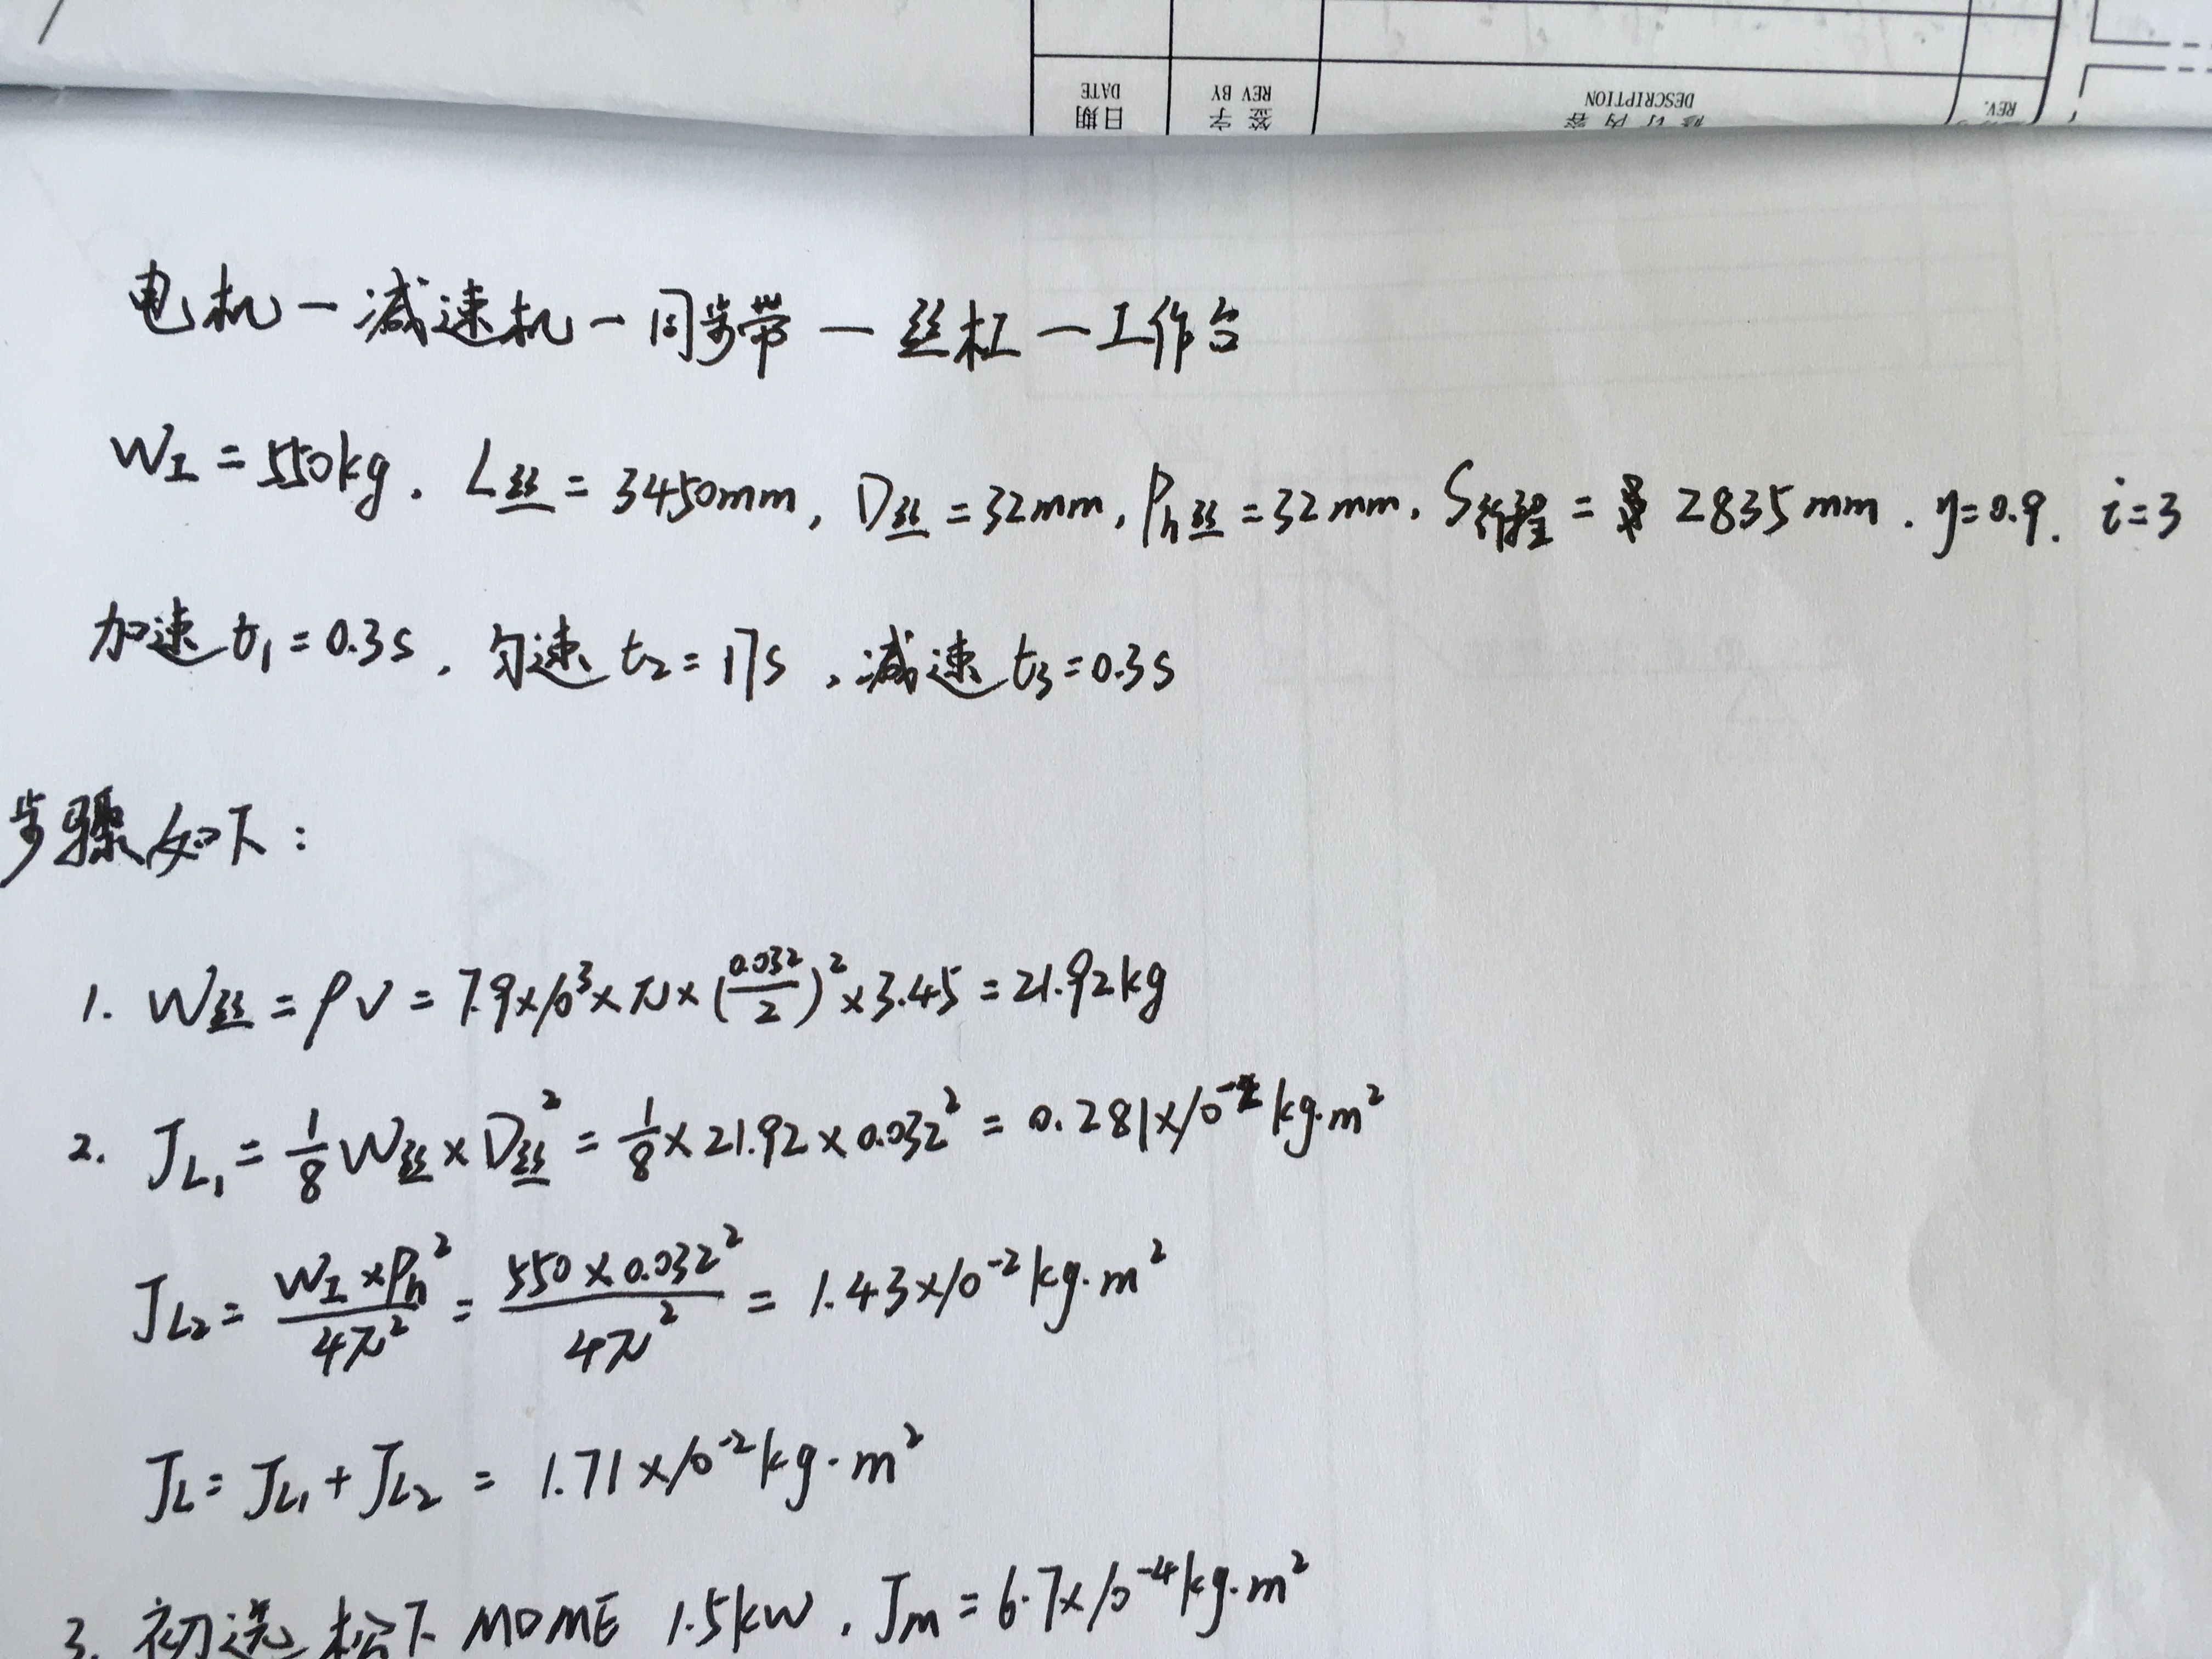 日期 签字 修订内容
DATE REV BY DESCRIPTION REV.
电机—减速机—同步带—丝杠—工作台
W工=550kg. L丝=3450mm, D丝=32mm, Ph丝=32mm. S行程= 2835mm. η=0.9. i=3
加速t₁=0.3s, 匀速t₂=17s, 减速t₃=0.3s
步骤如下:
1. W丝=ρV=7.9×10³×π×(0.032/2)²×3.45=21.92kg
2. JL₁=1/8W丝×D丝²=1/8×21.92×0.032²=0.281×10⁻²kg·m²
JL₂=W工×Ph²/4π²=550×0.032²/4π²=1.43×10⁻²kg·m²
JL=JL₁+JL₂=1.71×10⁻²kg·m²
3. 初选松下MDME 1.5kW, Jm=6.7×10⁻⁴kg·m²